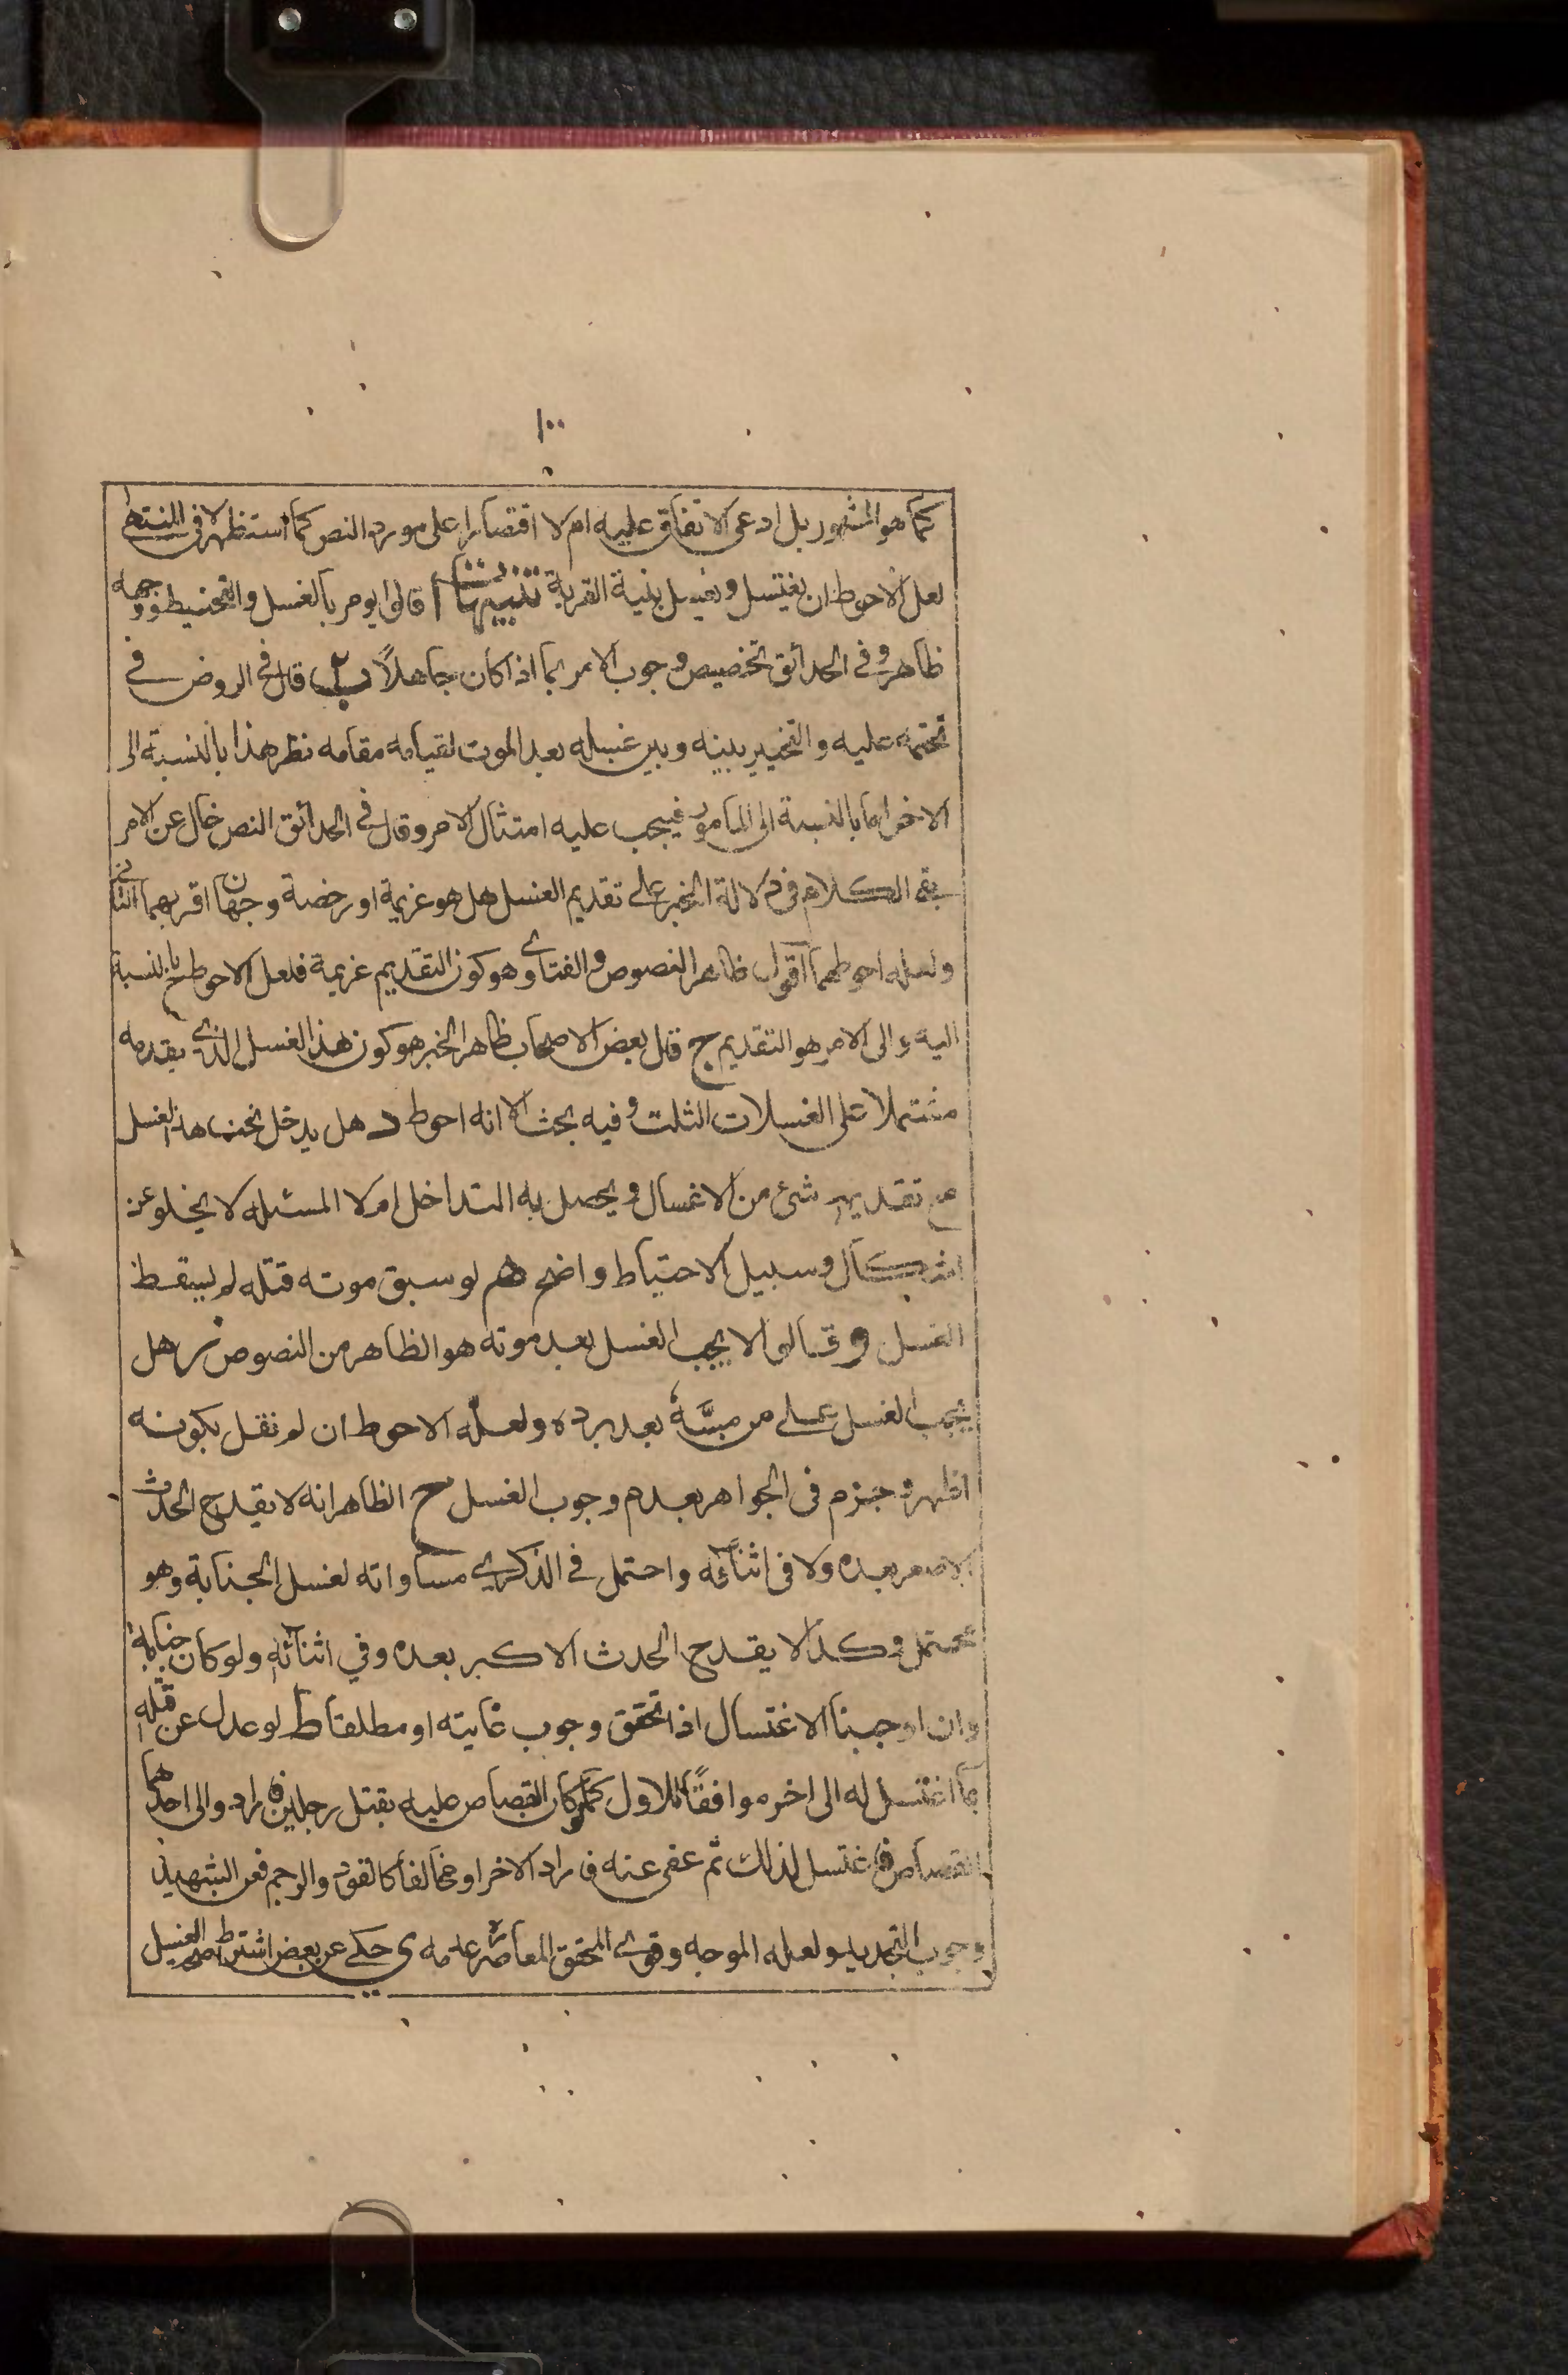 ١٠٠
كما هو المشهور بل ادعى الاتفاق عليه ام لا اقتصارا على مورد النص كما استظهر فى المنتهى
لعل الاحوط ان يغتسل ويغسل بنية القربة تنبيهات ا قالوا يومر بالغسل والتحنيط ووجهه
ظاهر وفى الحدائق تخصيص وجوب الامر بما اذا كان جاهلاً ب قال فى الروض فى
تحتمه عليه والتخيير بينه وبين غسله بعد الموت لقيامه مقامه نظر هذا بالنسبة الى
الاخر اما بالنسبة الى المأمور فيجب عليه امتثال الامر وقال فى الحدائق النص خال عن الامر
بقى الكلام فى دلالة الخبر على تقديم الغسل هل هو عزيمة او رخصة وجهان اقربهما الثانى
ولعله احوطهما اقول ظاهر النصوص والفتاوى هو كون التقديم عزيمة فلعل الاحوط ح بالنسبة
اليه والى الامر هو التقديم ج قال بعض الاصحاب ظاهر الخبر هو كون هذا الغسل الذى يقدمه
مشتملا على الغسلات الثلث وفيه بحث الا انه احوط د هل يدخل تحت هذا الغسل
مع تقديمه شئ من الاغسال ويحصل به التداخل ام لا المسئلة لا يخلو عن
اشكال وسبيل الاحتياط واضح هم لو سبق موته قتله لم يسقط
الغسل و قالوا لا يجب الغسل بعد موته هو الظاهر من النصوص ز هل
يجب الغسل على من مسَّهُ بعد برده ولعله الاحوط ان لم نقل بكونه
اظهر وجزم فى الجواهر بعدم وجوب الغسل ح الظاهر انه لا يقدح الحدث
الاصغر بعده ولا فى اثنائه واحتمل فى الذكرى مساواته لغسل الجنابة وهو
محتمل وكذا لا يقدح الحدث الاكبر بعده وفي اثنائه ولو كان جنابة
وان اوجبنا الاغتسال اذا تحقق وجوب غايته او مطلقا ط لو عدل عن قتله
بما اغتسل له الى اخر موافقًا للاول كما لو كان القصاص عليه بقتل رجلين فاراد والى احدهما
القصاص فاغتسل لذلك ثم عفى عنه فاراد الاخر او مخالفا كالقود والرجم فعن الشهيدين
وجوب التجديد ولعله الموجه وقوى المحقق المعاصر عدمه ى حكى عن بعض اشتراط الغسل